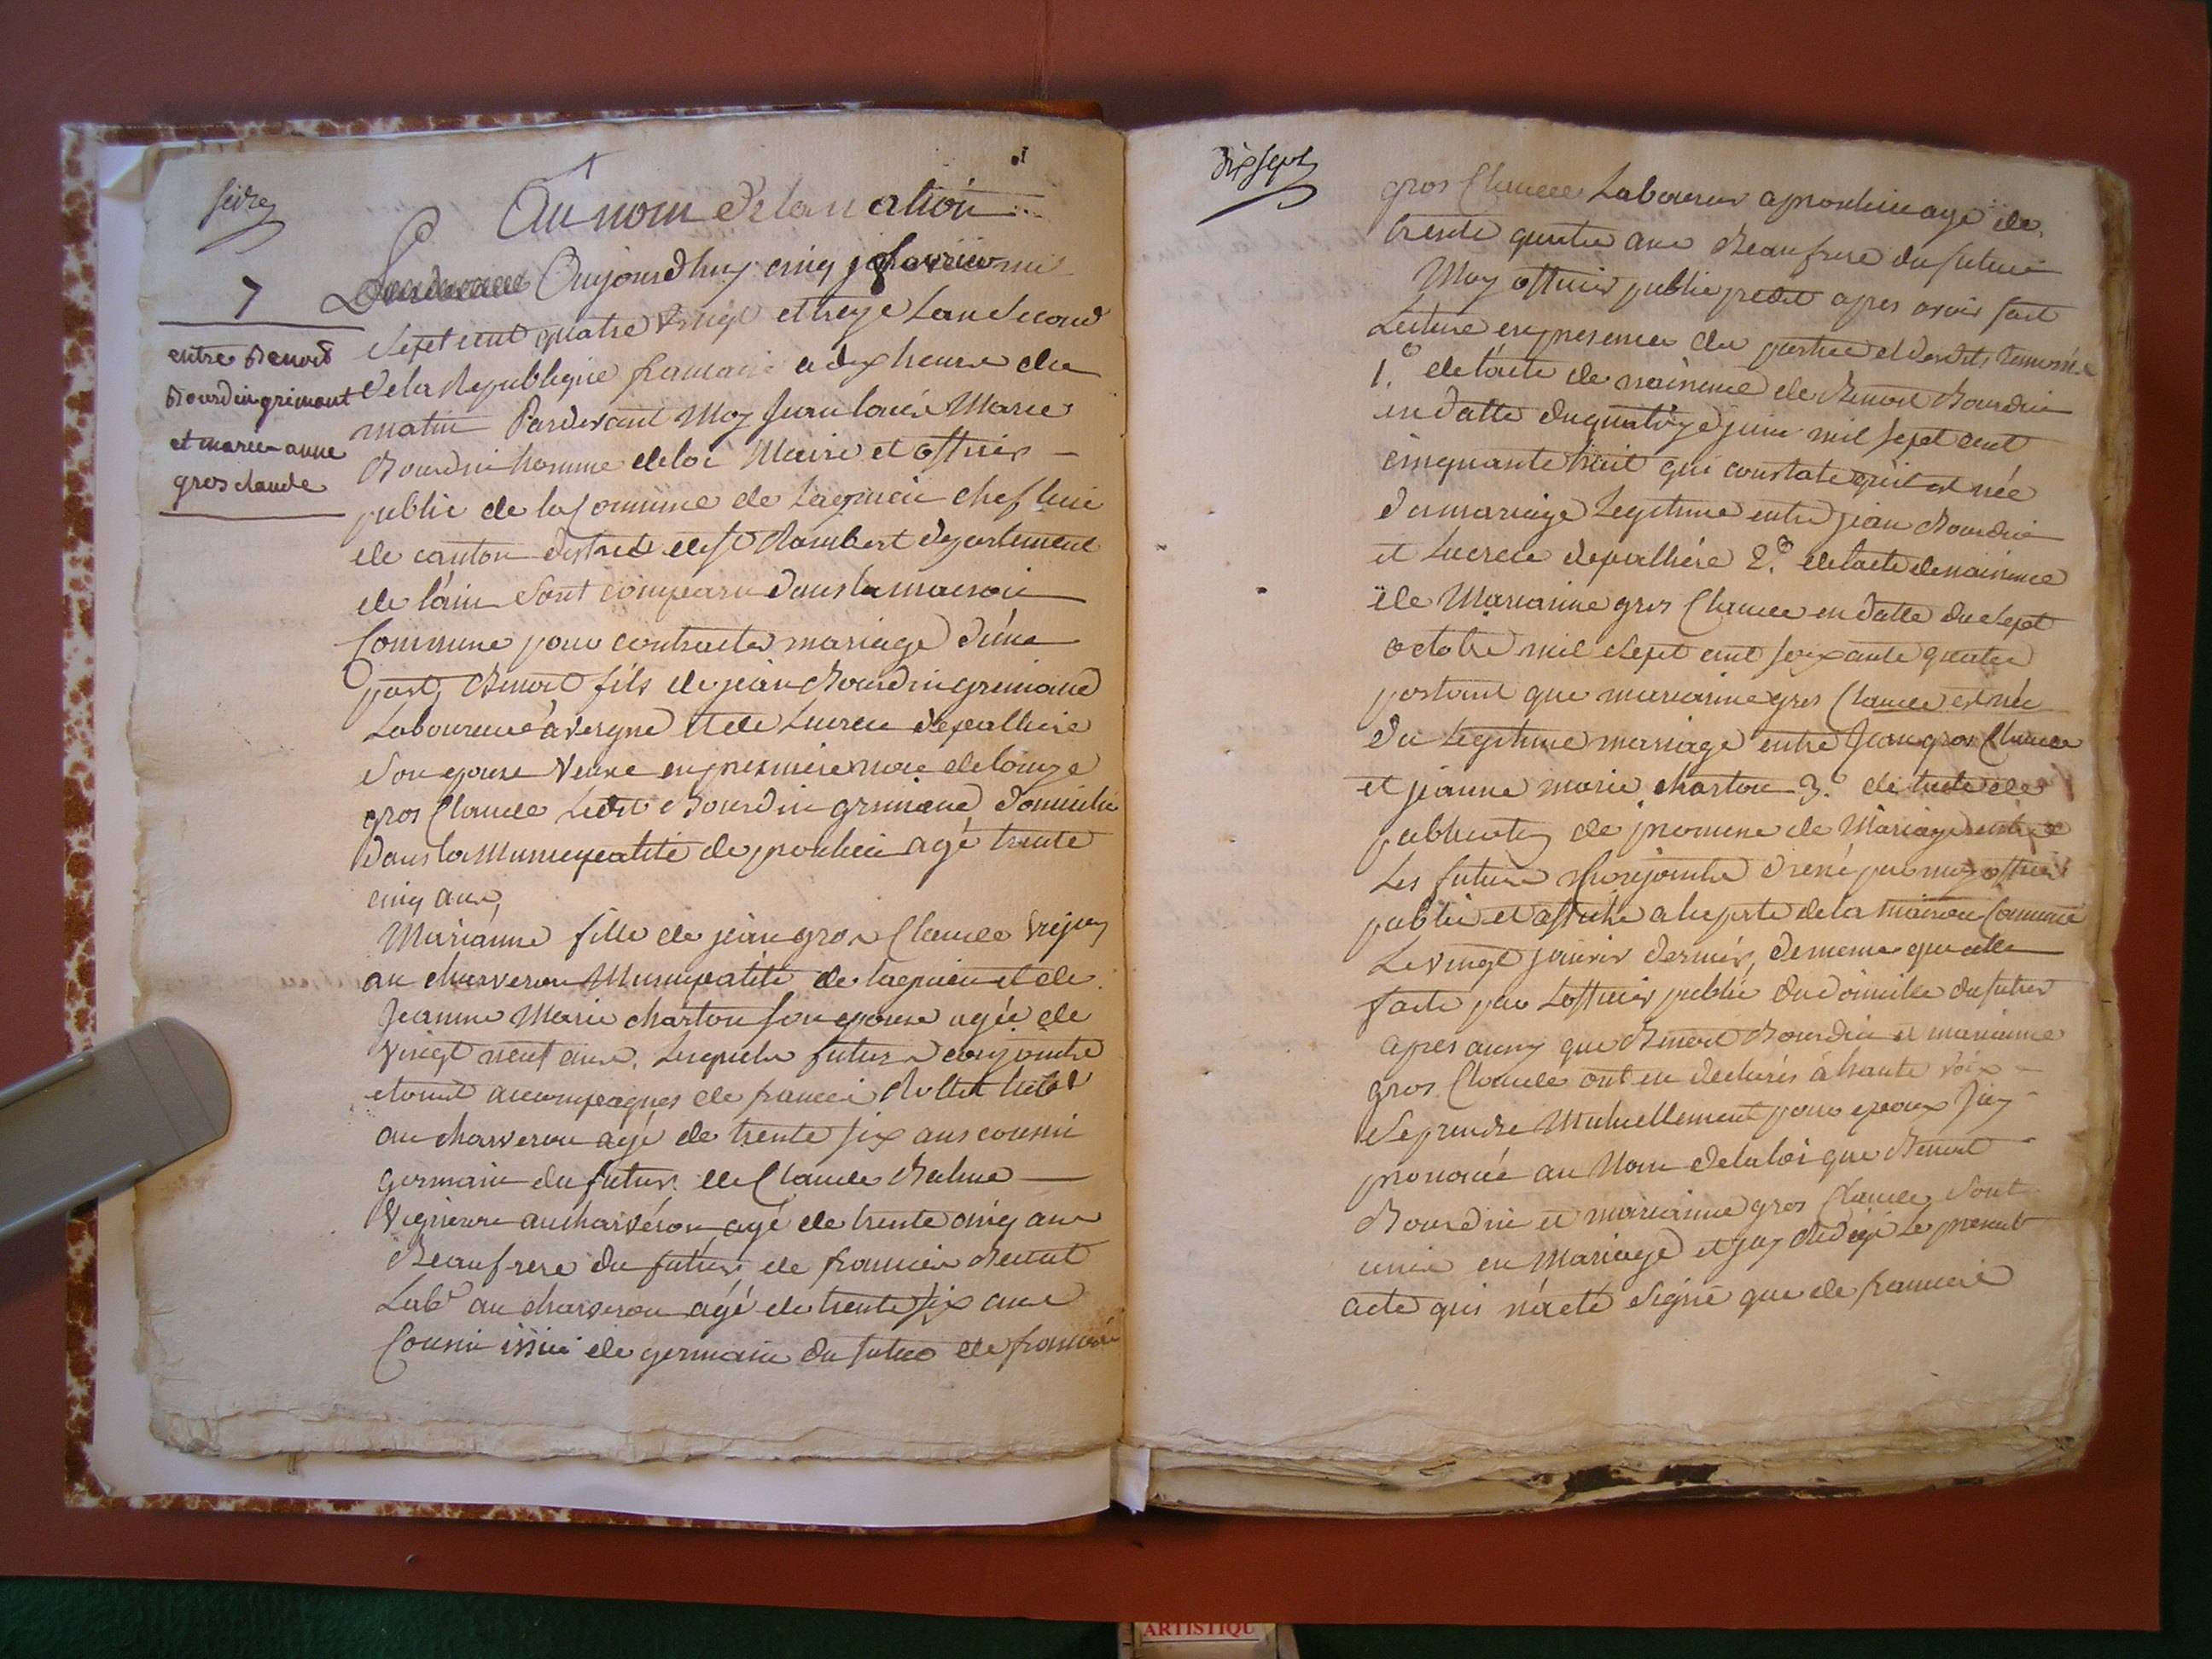 seize
Au nom de la nation
7
entre Benoit
Bourdin grimont
et marie anne
gros claude
Aujourdhuy cinq fevrier mil
Sept cent quatre Vingt et treze Lan Second
de la Republique francaise a dix heure du
matin Pardevant Moy Jean Marie
Bourdin homme de loi Maire et officier
public de la Commune de Lagnieu chef lieu
de canton district de St Rambert departement
de lain Sont comparu dans la maison
Commune pour contracter mariage d'une
part Benoit fils de jean Bourdin grimond
Laboureur a vergne et de Lucrece depalliere
Son epouse Veuve en premiere noce de
gros Claude Ledit Bourdin grimond domicilié
dans la Municipalité de agé trente
cinq ans,
Marianne fille de jean gros Claude
au charveron Municipalité de lagnieu et de
Jeanne Marie charton son epouse agée de
vingt neuf ans. Lesquels futurs conjointe
etoint accompagnes de francois Bollet
au charveron agé de trente six ans cousin
germain du futur. de Claude Balme
Vigneron au charveron agé de trente cinq ans
Beaufrere du futur de francois Benoit
Labr au charveron agé de trente six ans
Cousin issue de germain du futur de francois
dix sept
gros Claude Laboureur a agé de
trente quatre ans Beaufrere du future
Moy officier public predit apres avoir fait
Lecture en presence des parties et desdits temoins
1.° de lacte de naissance de Benoit Bourdin
en datte du quatorze juin mil sept cent
cinquante huit qui constate qu'il est née
du mariage Legitime entre jean Bourdin
et Lucrece depalliere 2.° de lacte de naissance
de Marianne gros Claude en datte du sept
octobre mil Sept cent soixante quatre
portant que marianne gros Claude est née
du Légitime mariage entre Jean gros Claude
et jeanne marie charton 3.° de lacte de
publication de promesse de Mariage entre
Les future Conjointe dressé par moy officier
public et affiché a la porte de la maison Commune
Le vingt janvier dernier, de meme que celle
faite par Lofficier public du domicile du futur
apres aussy que Benoit Bourdin et marianne
gros Claude ont eu declarés à haute voix
Se prendre Mutuellement pour epoux Jay
prononcé au Nom de la loi que Benoit
Bourdin et marianne gros Claude Sont
unie en Mariage et jay Redigé Le present
acte qui n'a eté Signé que de francois
ARTISTIQU